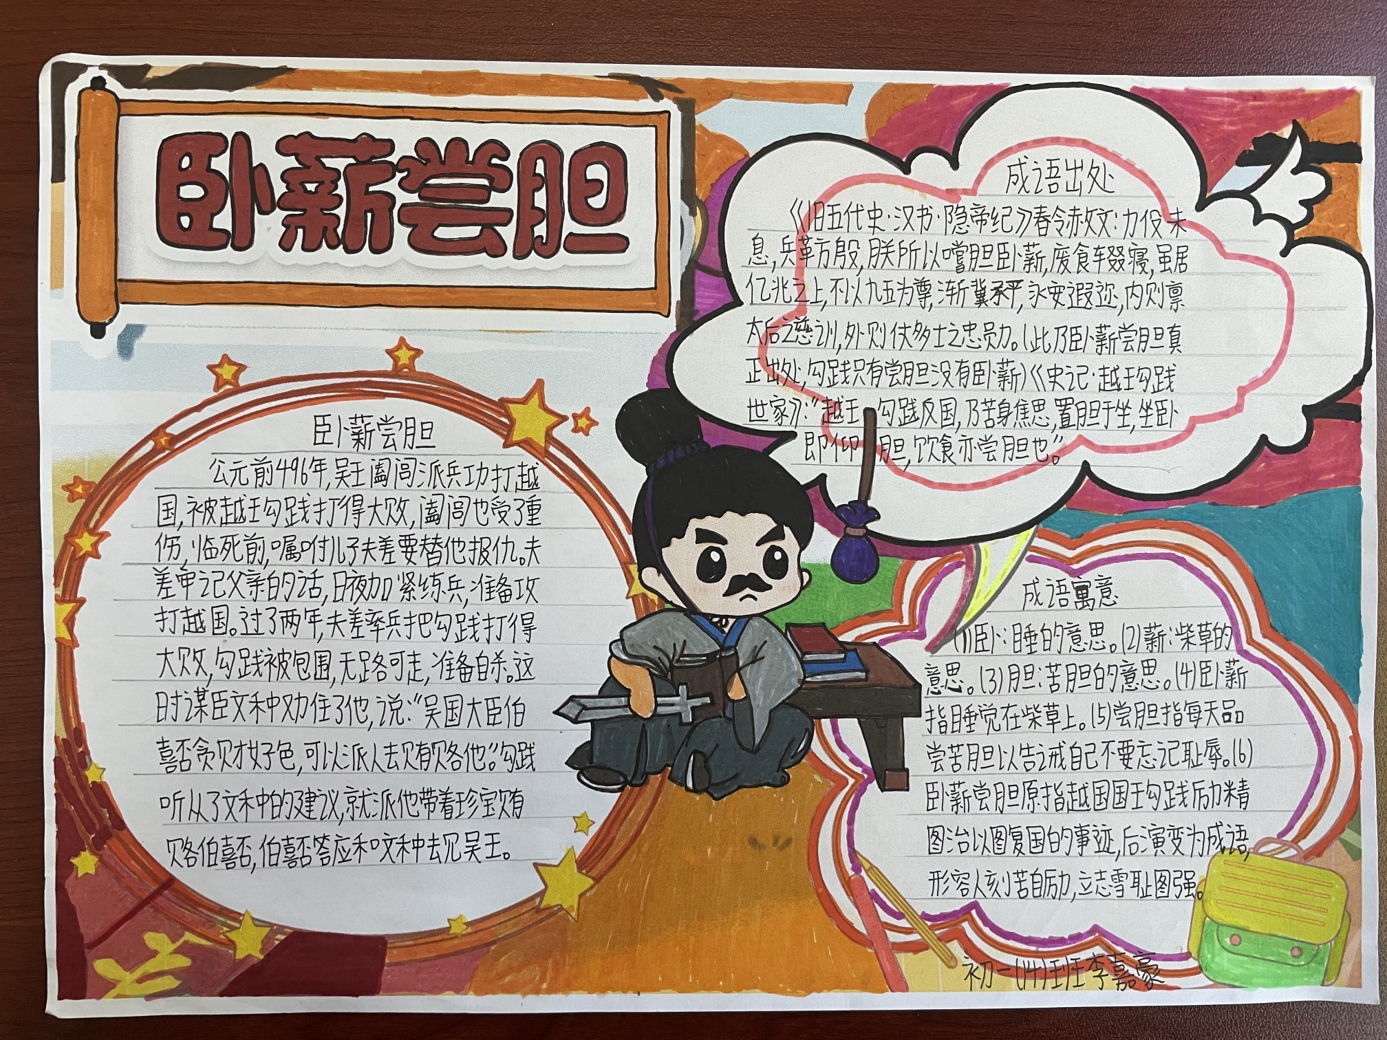 卧薪尝胆
成语出处
《旧五代史·汉书·隐帝纪》春令赦文:力役未
息,兵革方殷,朕所以嚐胆卧薪,废食辍寝,虽居
亿兆之上,不以九五为尊,渐冀承平,永安遐迩,内则禀
太后之慈训,外则仗多士之忠员力。(此乃卧薪尝胆真
正出处,勾践只有尝胆没有卧薪)《史记·越王勾践
世家》:“越王 勾践反国,乃苦身焦思,置胆于坐,坐卧
即仰 胆,饮食亦尝胆也。”
卧薪尝胆
公元前496年,吴王阖闾派兵功打越
国,被越王勾践打得大败,阖闾也受了重
伤,临死前,嘱咐儿子夫差要替他报仇。夫
差牢记父亲的话,日夜加紧练兵,准备攻
打越国。过了两年,夫差率兵把勾践打得
大败,勾践被包围,无路可走,准备自杀。这
时谋臣文种劝住了他,说:“吴国大臣伯
嚭贪财好色,可以派人去贿赂他。”勾践
听从了文种的建议,就派他带着珍宝贿
赂伯嚭,伯嚭答应和文种去见吴王。
成语寓意
(1)卧:睡的意思。(2)薪:柴草的
意思。(3)胆:苦胆的意思。(4)卧薪
指睡觉在柴草上。(5)尝胆指每天品
尝苦胆以告诫自己不要忘记耻辱。(6)
卧薪尝胆原指越国国王勾践励精
图治以图复国的事迹,后演变为成语,
形容人刻苦自励,立志雪耻图强。
初一(14)班李嘉豪